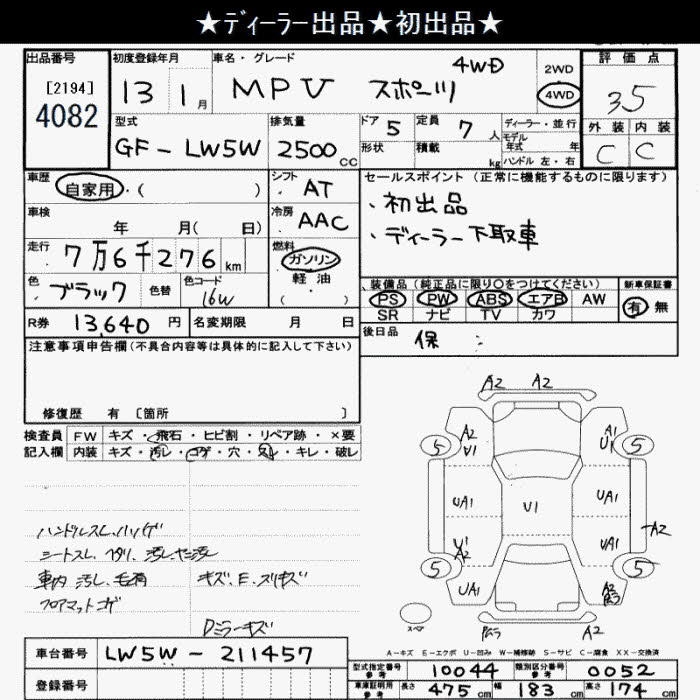 ★ディーラー出品★初出品★
出品番号 初度登録年月 車名・グレード 評価点
[2194]
4082
13 1月 MPV スポーツ 4WD 2WD 4WD 3.5
型式 GF-LW5W 排気量 2500CC ドア 5 定員 7人 ディーラー・並行 外装 内装
形状 積載 kg モデル年式 年 ハンドル 左・右 C C
車歴 自家用・( ) シフト AT セールスポイント(正常に機能するものに限ります)
・初出品
・ディーラー下取車
車検 年 月( 日) 冷房 AAC
走行 7万6千276km 燃料 ガソリン 軽油 ( )
色 ブラック 色替 色コード 16W
装備品(純正品に限り○をつけてください) 新車保証書
PS PW ABS エアB AW 有 無
SR ナビ TV カワ
R券 13,640円 名変期限 月 日 後日品 保:
注意事項申告欄(不具合内容等は具体的に記入して下さい)
修復歴 有 〔箇所 〕
検査員 FW キズ・飛石・ヒビ割・リペア跡・×要
記入欄 内装 キズ・汚レ・コゲ・穴・スレ・キレ・破レ
A2 A2
5 A2 U1 A1 U1 5
UA1 U1 UA1
U1 A2 UA1 A2
5 UA1 A2 5
A2
ハンドルスレ、ハゲ
シートスレ、ヘタリ、汚レ
車内 汚レ、毛有 キズ、E、スリキズ
フロアマットコゲ
Dミラーキズ
スペア
A-キズ E-エクボ U-凹み W-補修跡 S-サビ C-腐食 XX-交換済
車台番号 LW5W-211457
登録番号
型式指定番号 参考 10044 類別区分番号 参考 0052
車庫証明用 参考 長さ 475cm 幅 183cm 高さ 174cm